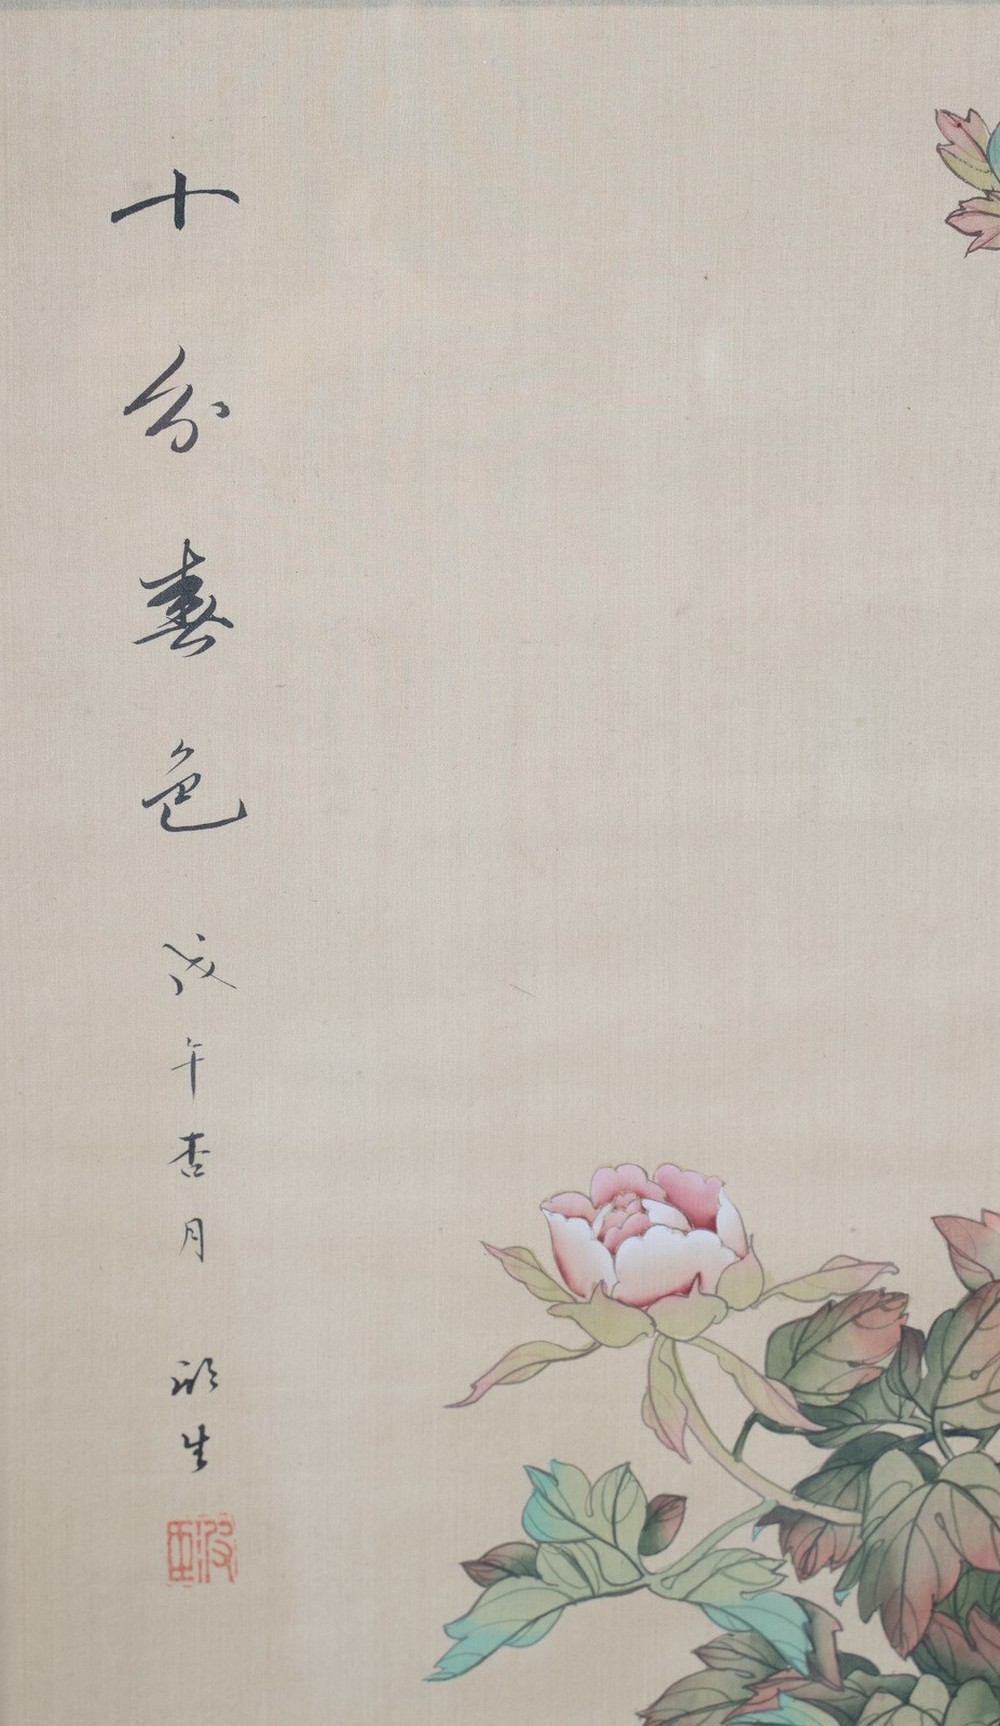 十分春色 戊午杏月